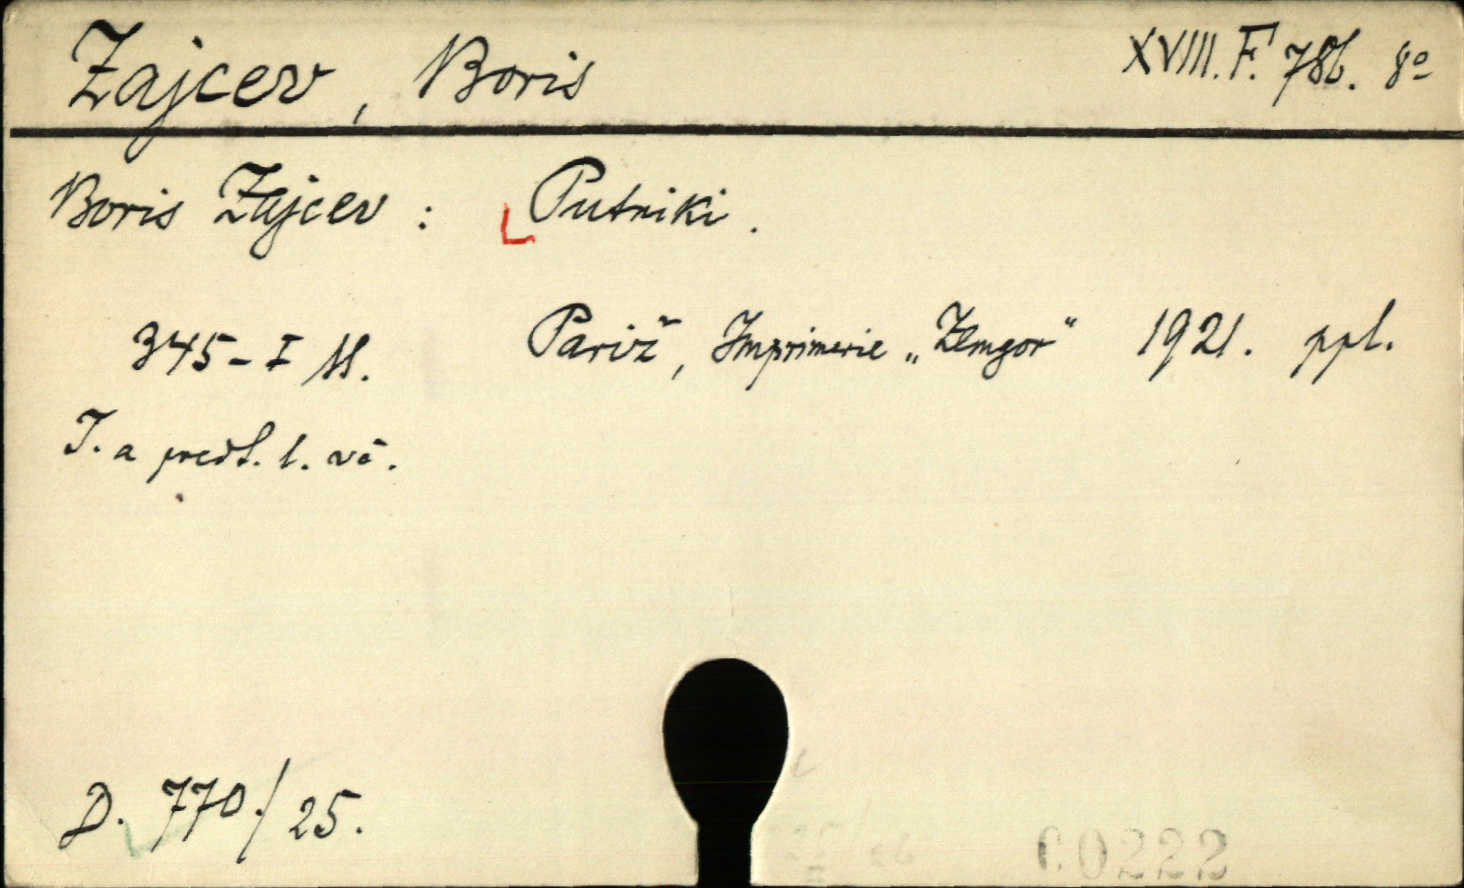 Zajcev, Boris XVIII. F. 786. 8º
Boris Zajcev : Putniki.
345-I M. Pariž, Imprimerie „Zemgor" 1921. ppl.
T. a předl. l. vč.
D. 770/25.
C0222